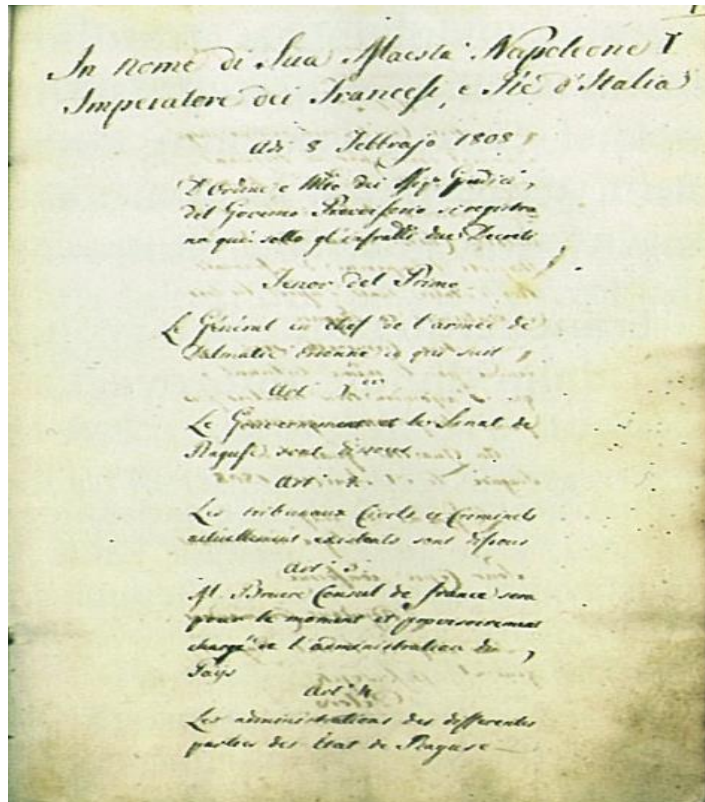 1
In nome di Sua Maestà Napoleone I
Imperatore dei Francesi, e Rè d'Italia
Adi 8 Febbrajo 1808
D'Ordine e dei Sigri Giudici,
del Governo Provvisorio si registra
no qui sotto gl'infratti due Decreti
Tenor del Primo
Le Général en chef de l'armée de
Dalmatie ordonne ce qui suit
Art. 1er
Le Gouvernement et le Senat de
Raguse sont dissous
Art. 2.
Les tribunaux Civils et Criminels
actuellement existents sont dissous
Art. 3.
M. Bruere Consul de france sera
pour le moment et provisoirement
chargé de l'administration du
Pays
Art. 4.
Les administrations des differentes
parties des Etat de Raguse